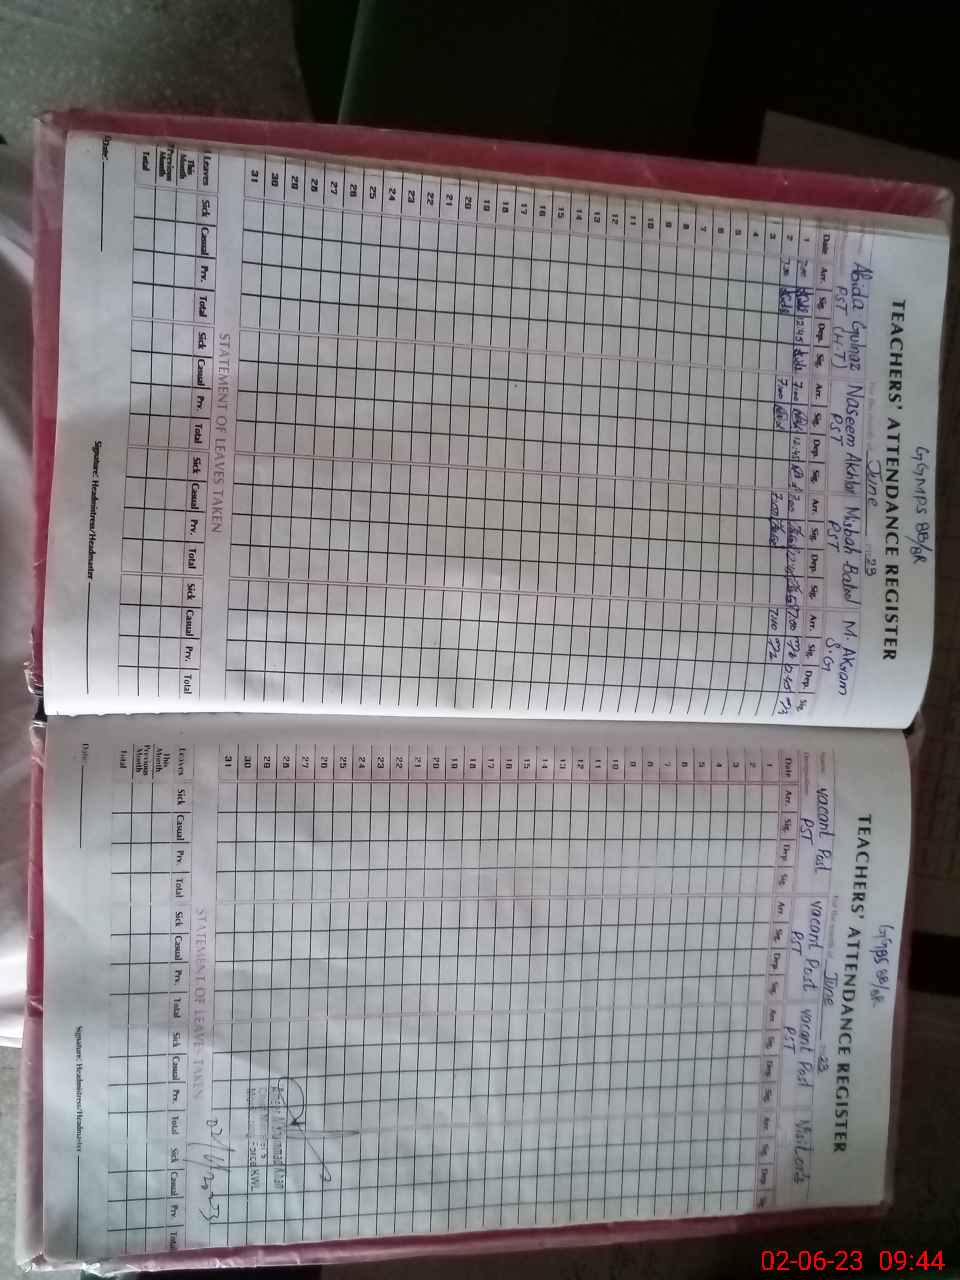 GGMPS 88/8R
TEACHERS' ATTENDANCE REGISTER
For the month of June 23
Abida Gulnaz Naseem Akhtar Misbah Batool M. Akram
PST (H.T) PST PST S.G
Date Arr. Sig. Dep. Sig. Arr. Sig. Dep. Sig. Arr. Sig. Dep. Sig. Arr. Sig. Dep. Sig.
1 7:00 12:45 7:00 12:45 7:00 7:00
2 7:00 7:00 7:00 7:00
3
4
5
6
7
8
9
10
11
12
13
14
15
16
17
18
19
20
21
22
23
24
25
26
27
28
29
30
31
STATEMENT OF LEAVES TAKEN
Leaves Sick Casual Prv. Total Sick Casual Prv. Total Sick Casual Prv. Total Sick Casual Prv. Total
This Month
Previous Month
Total
Date:
Signature: Headmistress/Headmaster
GGPS 88/8R
TEACHERS' ATTENDANCE REGISTER
For the month of June 23
Name vacant Post vacant Post vacant Post Visitors
Designation PST PST PST
Date Arr. Sig. Dep. Sig. Arr. Sig. Dep. Sig. Arr. Sig. Dep. Sig. Arr. Sig. Dep. Sig.
1
2
3
4
5
6
7
8
9
10
11
12
13
14
15
16
17
18
19
20
21
22
23
24
25
26
27
28
29
30
31
STATEMENT OF LEAVES TAKEN
02/6/2023
Leaves Sick Casual Prv. Total Sick Casual Prv. Total Sick Casual Prv. Total Sick Casual Prv. Total
This Month
Previous Month
Total
Date:
Signature: Headmistress/Headmaster
02-06-23 09:44